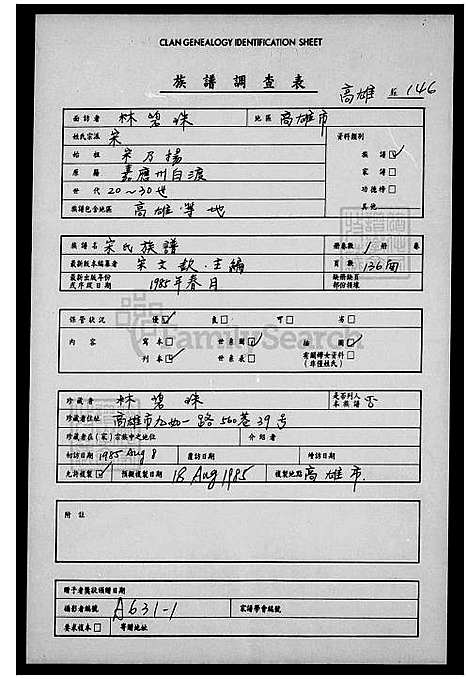 CLAN GENEALOGY IDENTIFICATION SHEET
族譜調查表
高雄 146
面訪者 林碧珠 地區 高雄市
姓氏宗派 宋 資料類別
始祖 宋乃揚 族譜☑
原籍 嘉應州白渡 家譜☐
世代 20~30世 功德榜☐
族譜包含地區 高雄等地 其他
族譜名 宋氏族譜 冊卷數 1 冊 卷
最新版本編纂者 宋文欽 主編 頁數 136面
最新出版年份或序跋日期 1985年春月 缺冊缺頁部份損壞
保管狀況 優☑ 良☐ 可☐ 劣☐
內容 寫本☐ 世系圖☑ 插圖☑
刊本☑ 世系表☐ 有關婦女資料☐(非僅姓氏)
FamilySearch
珍藏者 林碧珠 是否列入本族譜 否
珍藏者住址 高雄市九如一路560巷39号
珍藏者在(家)宗族中之地位 介紹者
初訪日期 1985 Aug 8 覆訪日期 增訪日期
允許複製☑ 預擬複製日期 18 Aug 1985 複製地點 高雄市.
附註
贈予者獎狀頒贈日期
攝影者編號 A631-1 家譜學會編號
要求複本☐ 寄贈地址